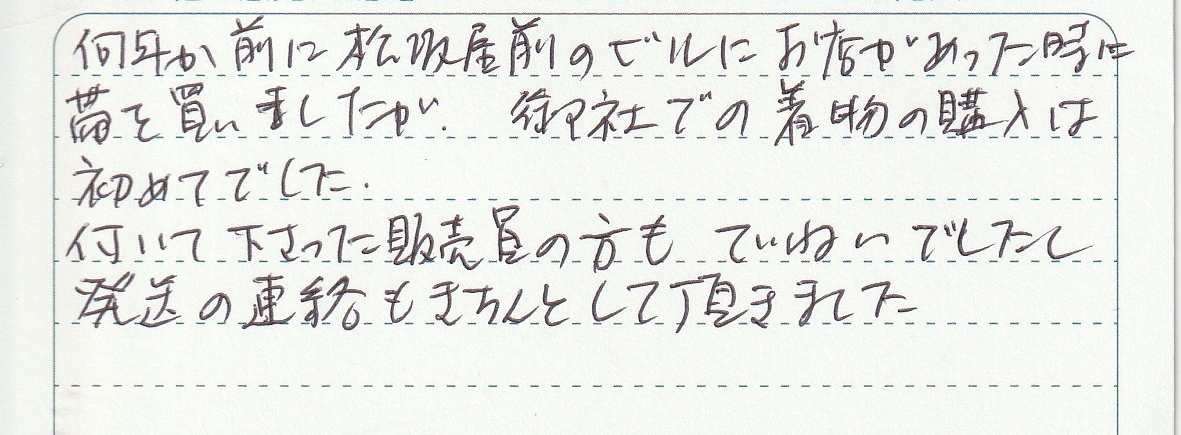 何年か前に松坂屋前のビルにお店があった時に
帯を買いましたが、御社での着物の購入は
初めてでした.
付いて下さった販売員の方も ていねいでしたし
発送の連絡もきちんとして頂きました